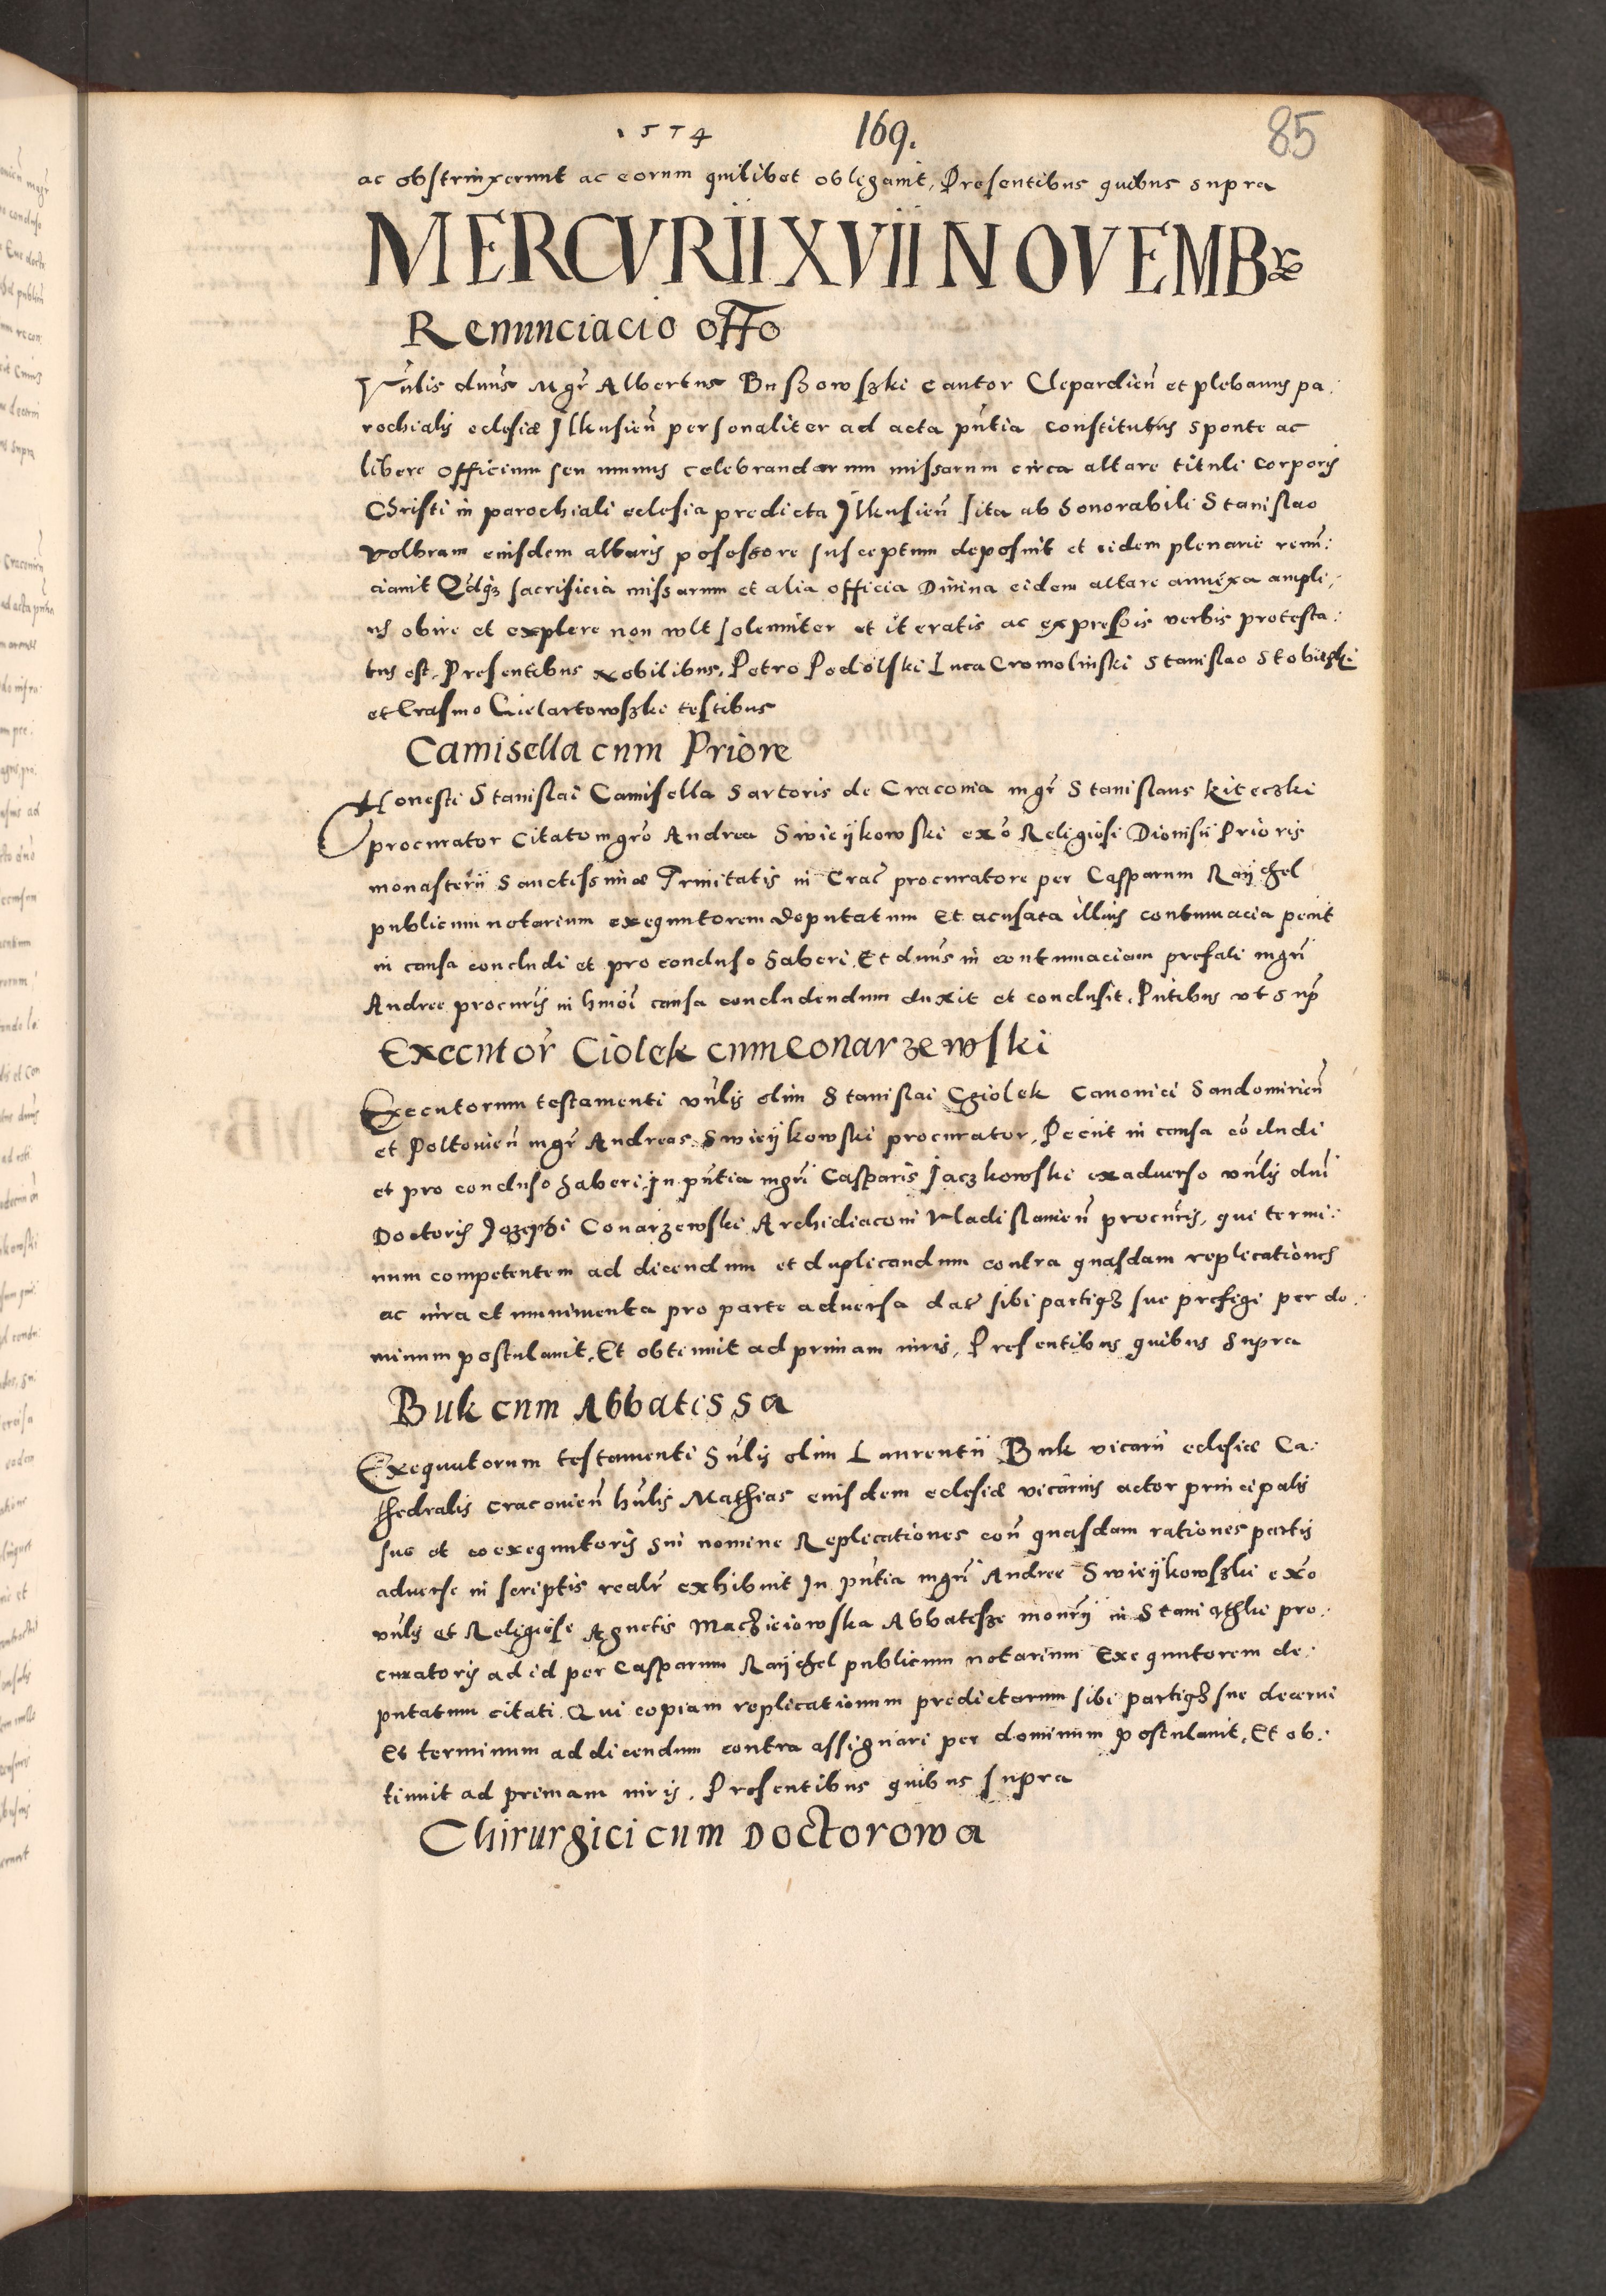 1574 169. 85
ac obstrinxerunt ac eorum quilibet obligauit, Presentibus quibus supra
MERCVRII XVII NOVEMBR
Renunciacio offo
Vnlis dnus Mgr Albertus Bussowszki cantor Clepardien et plebanus pa:
rochialis eclesiæ Ilkusien personaliter ad acta pntia constitutus sponte ac
libere officium seu munus celebrandarum missarum circa altare tituli corporis
Christi in parochiali eclesia predicta Ilkusien sita ab honorabili Stanislao
Volbram eiusdem altaris posessore susceptum deposuit et eidem plenarie renun:
ciauit Qdqz sacrificia missarum et alia officia Diuina eidem altare annexa ampli,
us obire et explere non wlt solenniter et iteratis ac expressis verbis protesta:
tus est. Presentibus nobilibus, Petro Podolski Luca Cromolinski Stanislao
et Erasmo Gielartowszki testibus
Camisella cum Priore
Honesti Stanislai Camisella Sartoris de Craconia mgr Stanislaus Kiteczki
procurator citato mgro Andrea Swieykowski exo Religiosi Dionisii Prioris
monasterii Sanctissimæ Trinitatis in Crac procuratore per Casparum Raychel
publicum notarium exequutorem deputatum Et acusata illius contumacia petiit
in causa concludi et pro concluso haberi. Et dnus in contumaciam prefati mgri
Andree procuris in hmoi causa concludendum duxit et conclusit. Pntibus vt sup
Executor Ciolek cum Conarzewski
Executorum testamenti vnlis olim Stanislai Cziolek Canonici Sandomirien
et Poltouien mgr Andreas Swieykowski procurator, Peciit in causa co cludi
et pro concluso haberi, in pntia mgri Casparis Jaczkowski ex aduerso vnlis dni
Doctoris Jozephi Conarzewski Archidiaconi Vladislauien procuris, qui termi:
num competentem ad dicendum et duplicandum contra quasdam replicationes
ac iura et munimenta pro parte aduersa dat sibi partiqz sue prefigi per do:
minum postulauit, Et obtinuit ad primam iuris, Presentibus quibus Supra
Buk cum Abbatissa
Exequutorum testamenti hnlis olim Laurentii Buk vicarii eclesiæ Ca:
thedralis Cracouien hnlis Mathias eiusdem eclesiæ vicarius actor principalis
suo et coexequutoris sui nomine Replicationes con quasdam rationes partis
aduerse in scriptis realr exhibuit In pntia mgri Andree Swieykowszki exo
vnlis et Religiose Agnetis Maczieiowska Abbatisze monry in Staniathki pro:
curatoris ad id per Casparum Raychel publicum notarium Exequutorem de:
putatum citati. Qui copiam replicationum predictarum sibi partiqz sue decerni
Et terminum ad dicendum contra assignari per dominum postulauit, Et ob:
tinuit ad primam iuris. Presentibus quibus supra
Chirurgici cum Doctorowa